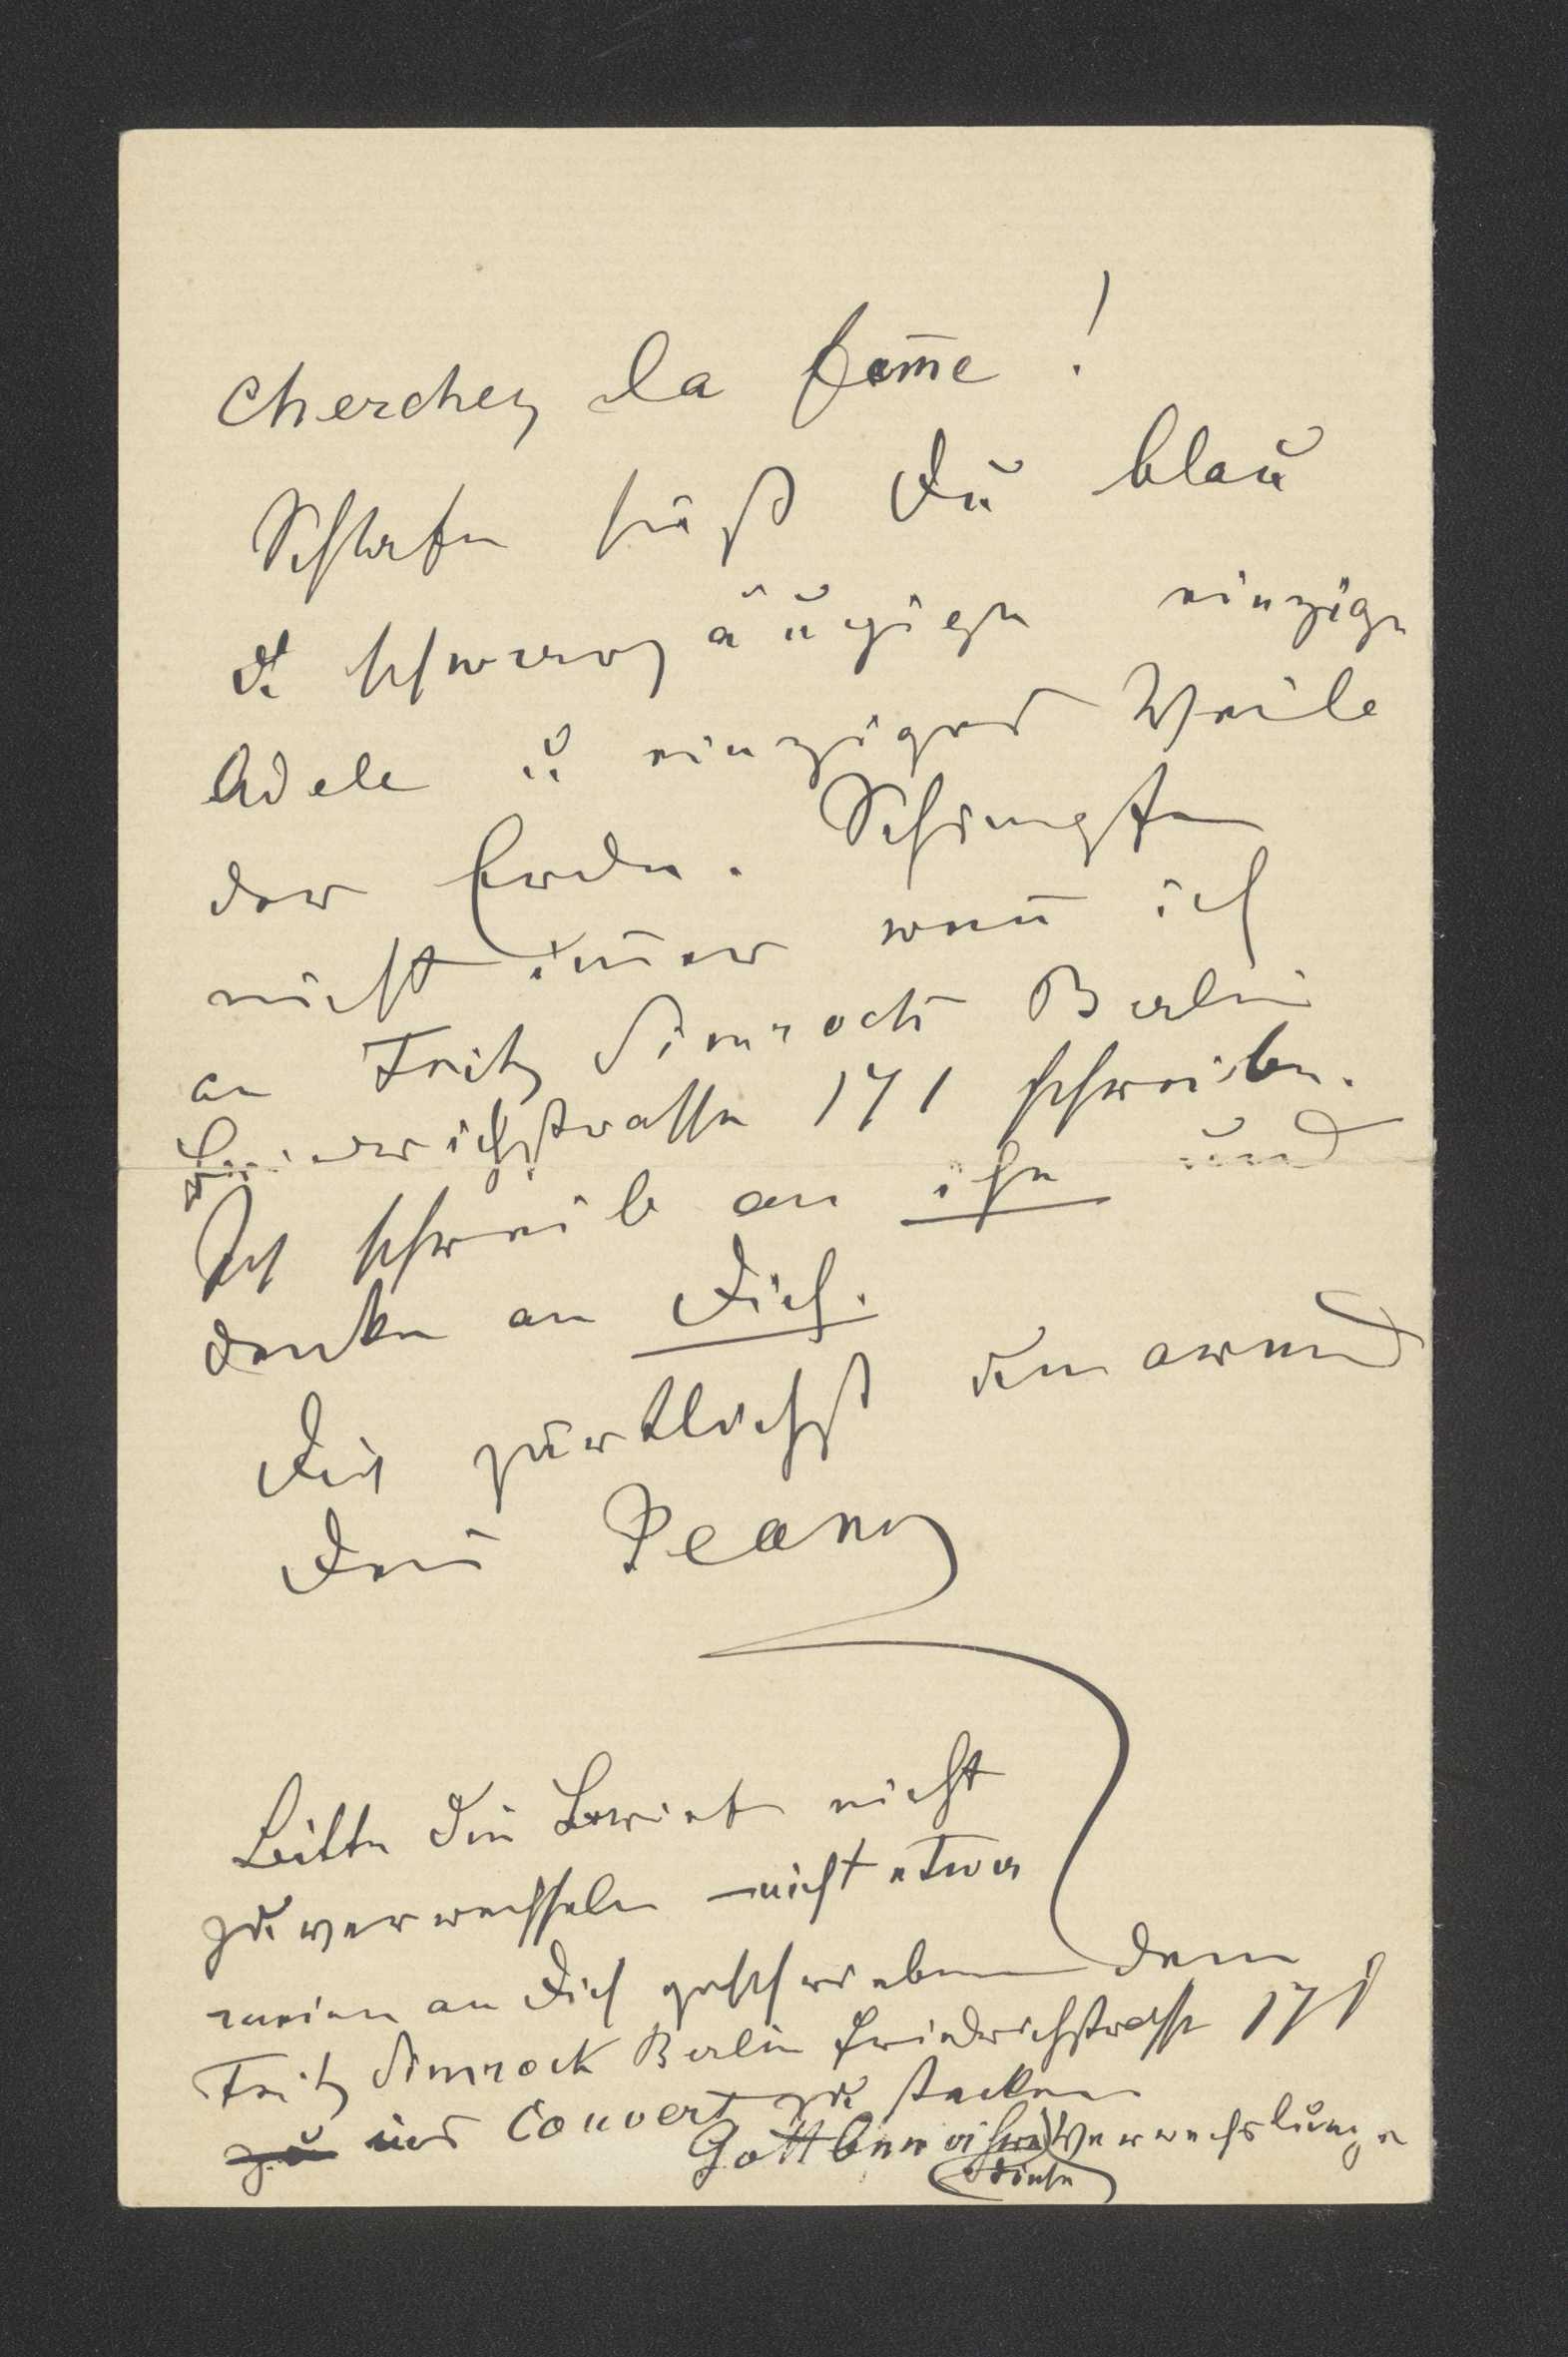 Cherchez la fem̅e!
Schlafe süß Du blau
& schwarzäugige einzige
Adele u einziges Weile
der Erde. Schimpfe
nicht im̅er wen̅ ich
an Fritz Simrock Berlin
Friedrichstrasse 171 schreibe.
Ich schreib an ihn und
denke an Dich.
Dich zärtlichst umarmend
Dein Jeany
Bitte die Briefe nicht
zu verwechseln nicht etwa
meinen an Dich geschriebenen dem
Fritz Simrock Berlin Friedrichstrasse 171
zu ins Couvert zu stecken
Gott bewahre Verwechslunge
diese